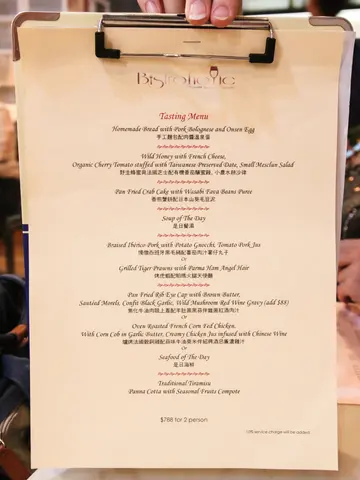 Bistronomic
Tasting Menu
Homemade Bread with Pork Bolognese and Onsen Egg
手工麵包配肉醬溫泉蛋
Wild Honey with French Cheese,
Organic Cherry Tomato stuffed with Taiwanese Preserved Date, Small Mesclun Salad
Pan Fried Crab Cake with Wasabi Fava Beans Puree
香煎蟹餅配日本山葵毛豆泥
Soup of The Day
是日餐湯
Braised Iberico Pork with Potato Gnocchi, Tomato Pork Jus
Or
Grilled Tiger Prawns with Parma Ham Angel Hair
Or
Pan Fried Rib Eye Cap with Brown Butter,
Sautéed Morels, Confit Black Garlic, Wild Mushroom Red Wine Gravy (add $88)
Or
Oven Roasted French Corn Fed Chicken,
With Corn Cob in Garlic Butter, Creamy Chicken Jus infused with Chinese Wine
Or
Seafood of The Day
是日海鮮
Traditional Tiramisu
Panna Cotta with Seasonal Fruits Compote
$788 for 2 person
10% service charge will be added